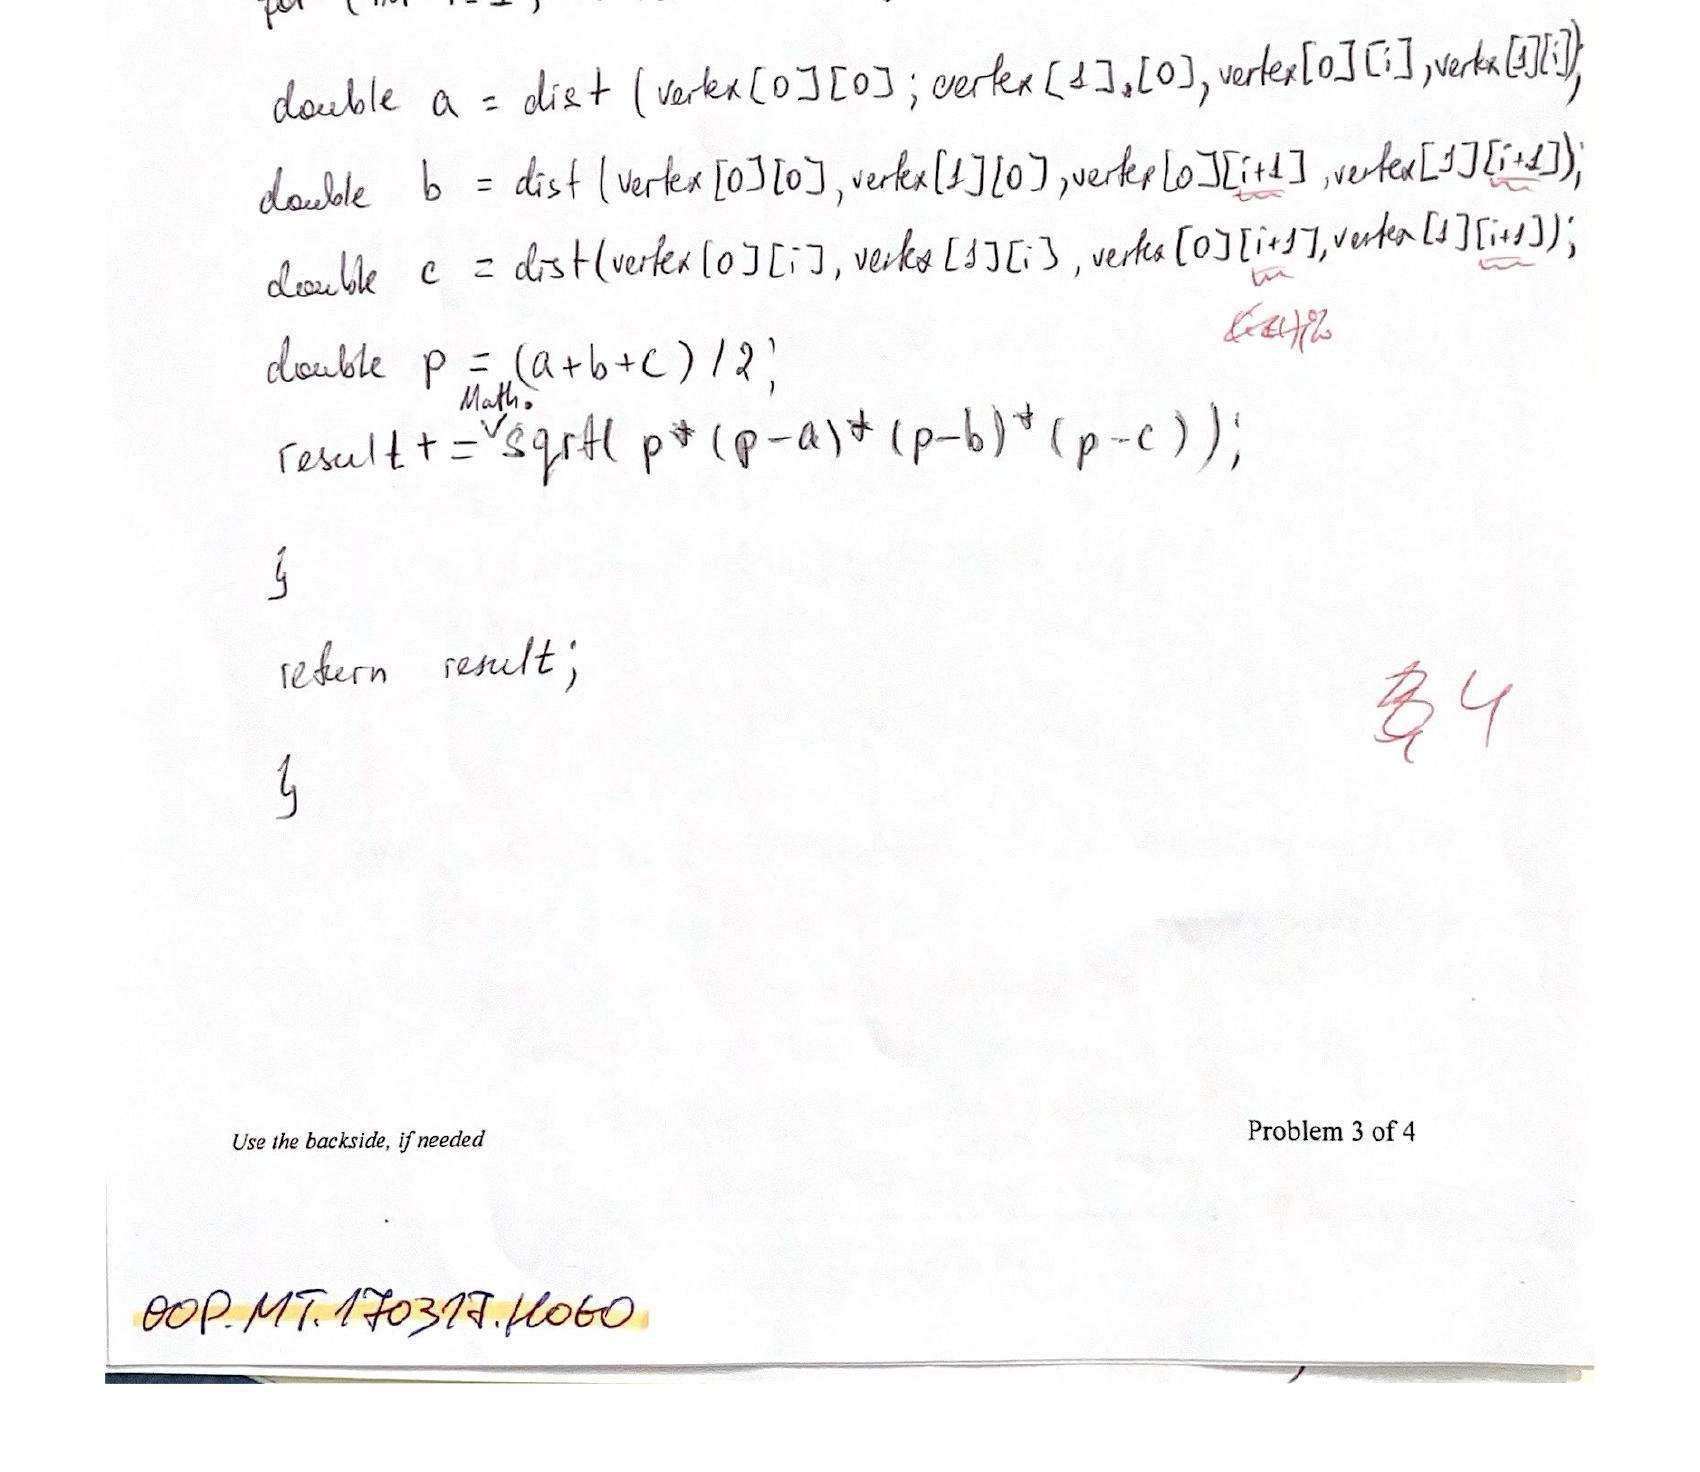 for (int i=1;
double a = dist (vertex[0][0]; vertex[1],[0], vertex[0][i], vertex[1][i]);
double b = dist (vertex[0][0], vertex[1][0], vertex[0][i+1], vertex[1][i+1]);
double c = dist(vertex[0][i], vertex[1][i], vertex[0][i+1], vertex[1][i+1]);
double p = (a+b+c)/2;
Math.
result += sqrt( p*(p-a)*(p-b)*(p-c));
}
return result;
4
}
Use the backside, if needed
Problem 3 of 4
OOP.MT.170317.H060